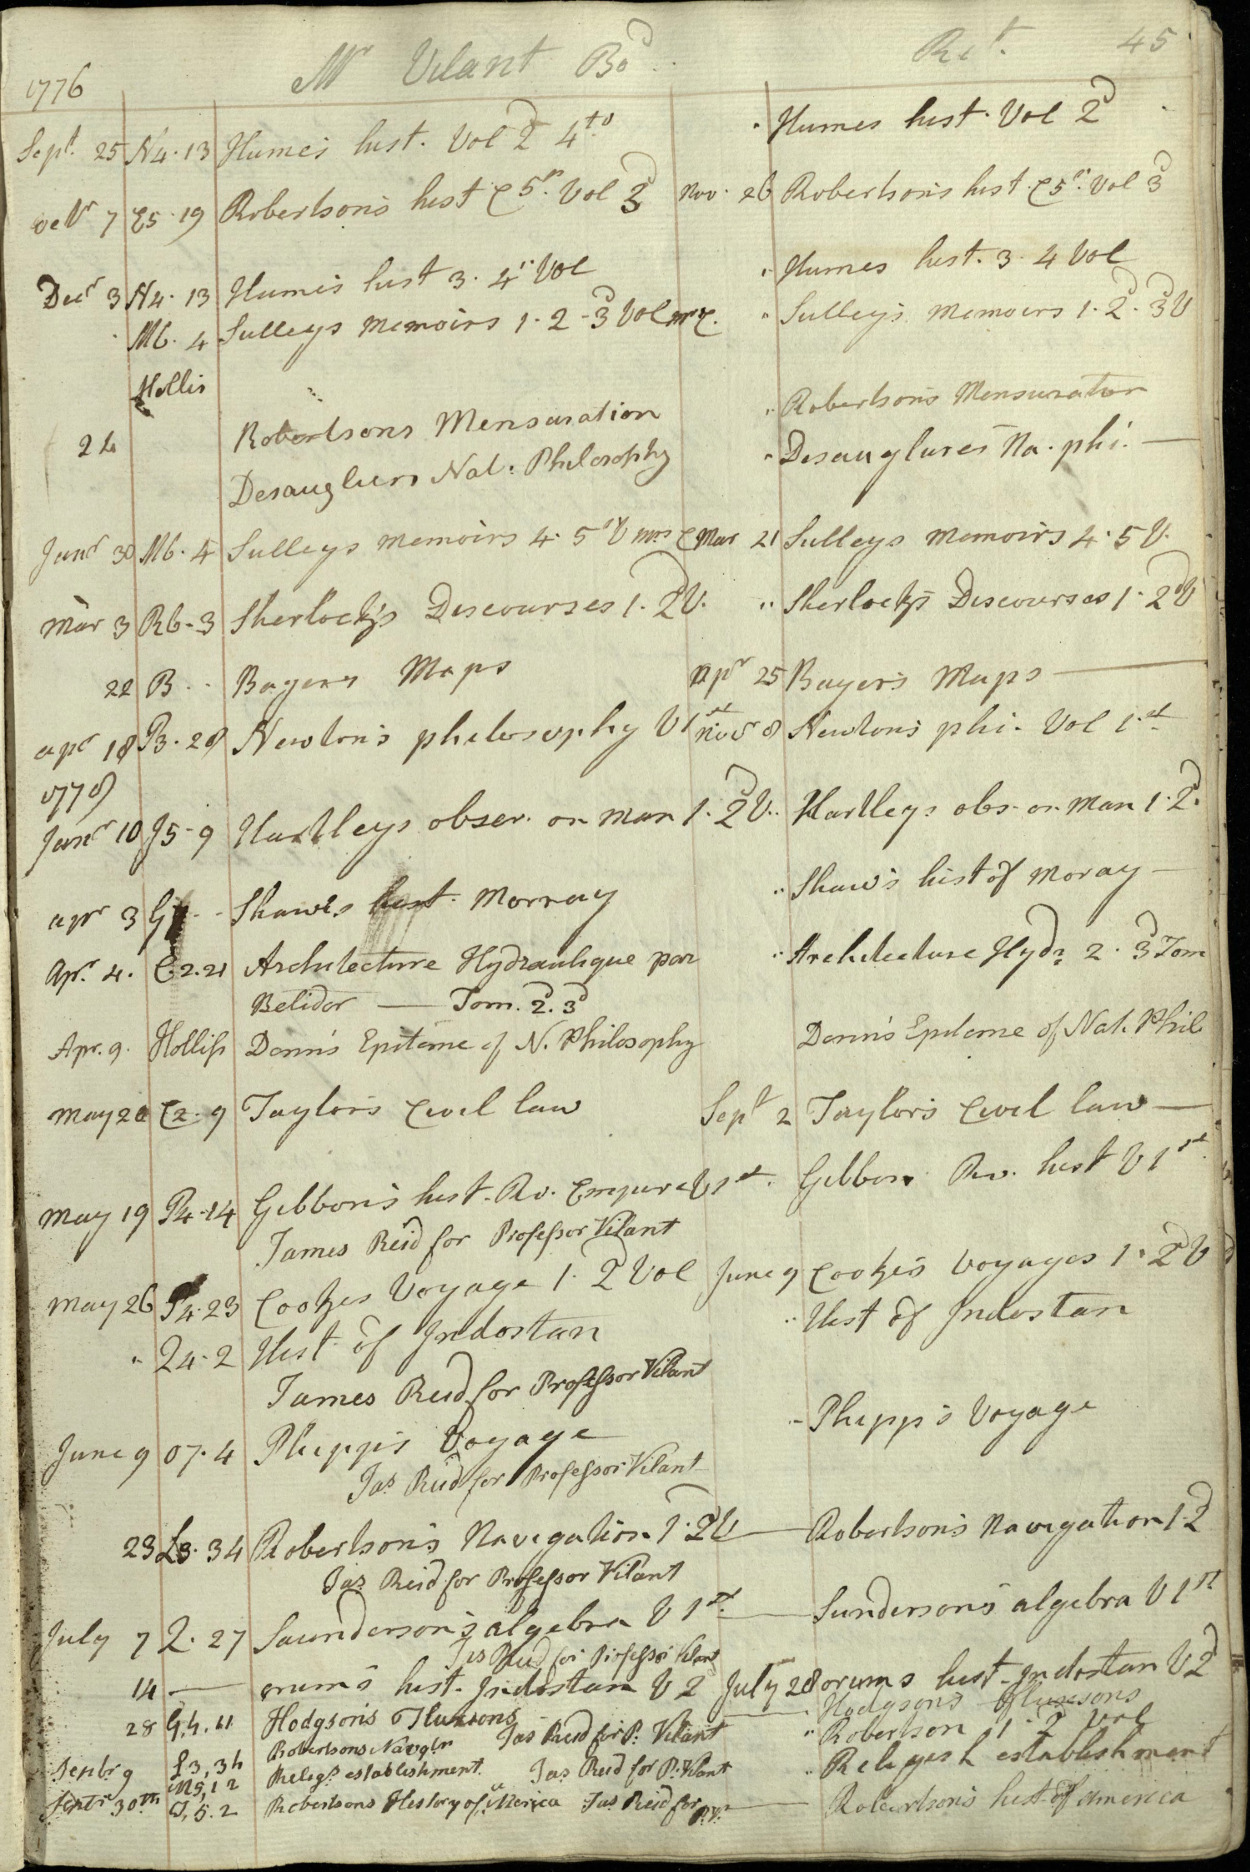 1776 Mr Vilant Bod Ret. 45
Sept. 25 N4.13 Hume's hist. Vol 2d 4to Humes hist. Vol 2d
Octr 7 E5.19 Robertson's hist C 5th Vol 3d Nov. 26 Robertson's hist C 5th Vol 3d
Decr 3 N4.13 Hume's hist 3. 4th Vol Humes hist. 3. 4 Vol
M6.4 Sulleys Memoirs 1. 2. 3d Vol Sulleys Memoirs 1. 2d. 3d V
Hollis
24 Robertsons Mensuration Robertson's Mensuration
Desaugliers Nat. Philosophy Desauglures Na. phi.
Janr 30 M6.4 Sulleys memoirs 4. 5th V Mar 21 Sulleys Memoirs 4. 5 V.
Mar 3 R6.3 Sherlock's Discourses 1. 2d V. Sherlock's Discourses 1. 2d V
22 B Bayers Maps Apr 25 Bayer's Maps
Apr 18 B.28 Newton's philosophy V 1st Novr 8 Newtons phi. Vol 1st
1778
Janr 10 J5.9 Hartleys obser. on man 1. 2d V. Hartleys obs. on Man 1. 2d.
Apr 3 Shaw's hist. Morray Shaw's hist of Moray
Apr. 4. C2.21 Architecture Hydraulique par Architecture Hydr 2. 3d Tom
Belidor — Tom. 2d. 3d
Apr. 9. Hollis Donn's Epitome of N. Philosophy Donn's Epitome of Nat. Phil
May 20 C2.9 Taylor's Civil law Sept 2 Taylor's Civil law
May 19 P4.14 Gibbon's hist. Ro. Empire V 1st. Gibbon Ro. hist V 1st.
James Reid for Professor Vilant
May 26 P4.23 Cookes Voyage 1. 2d Vol June 9 Cooke's Voyages 1. 2d V
" Q4.2 Hist of Indostan Hist of Indostan
James Reid for Professor Vilant
June 9 O7.4 Phipps's Voyage Phipp's Voyage
Jas Reid for Professor Vilant
23 L3.34 Robertson's Navigation 1. 2d V Robertson's Navigation 1. 2d
Jas Reid for Professor Vilant
July 7 Q.27 Saunderson's algebra V 1st. Sunderson's algebra V 1st
Jas Reid for Professor Vilant
14 — Orum's hist. Indostan V 2 July 28 Orums hist. Indostan V 2d
28 G.4.11 Hodgson's Fluxions Hodgsons Fluxions
Robertsons Navign Jas Reid for P. Vilant Robertson 1. 2 Vol
Septbr 9 L3,34 Religs establishment. Jas Reid for P. Vilant Religs establishment
M5,12
Septr 30th 5.2 Robertsons History of America Jas Reid for P.V. Robertson's hist of America